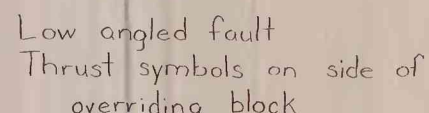 Low angled fault
Thrust symbols on side of
overriding block